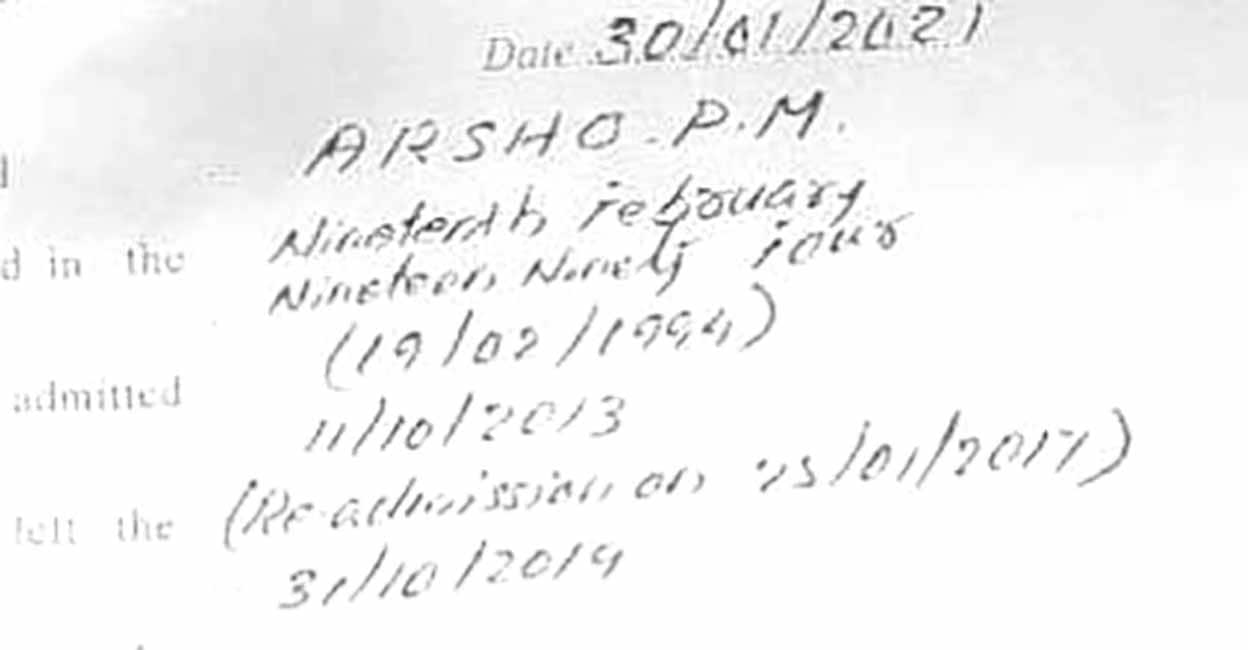 Date 30/01/2021
ARSHO. P.M.
Nineteenth February
d in the
Nineteen Ninety four
(19/02/1994)
admitted
11/10/2013
(Re-admission on 25/01/2017)
left the
31/10/2019